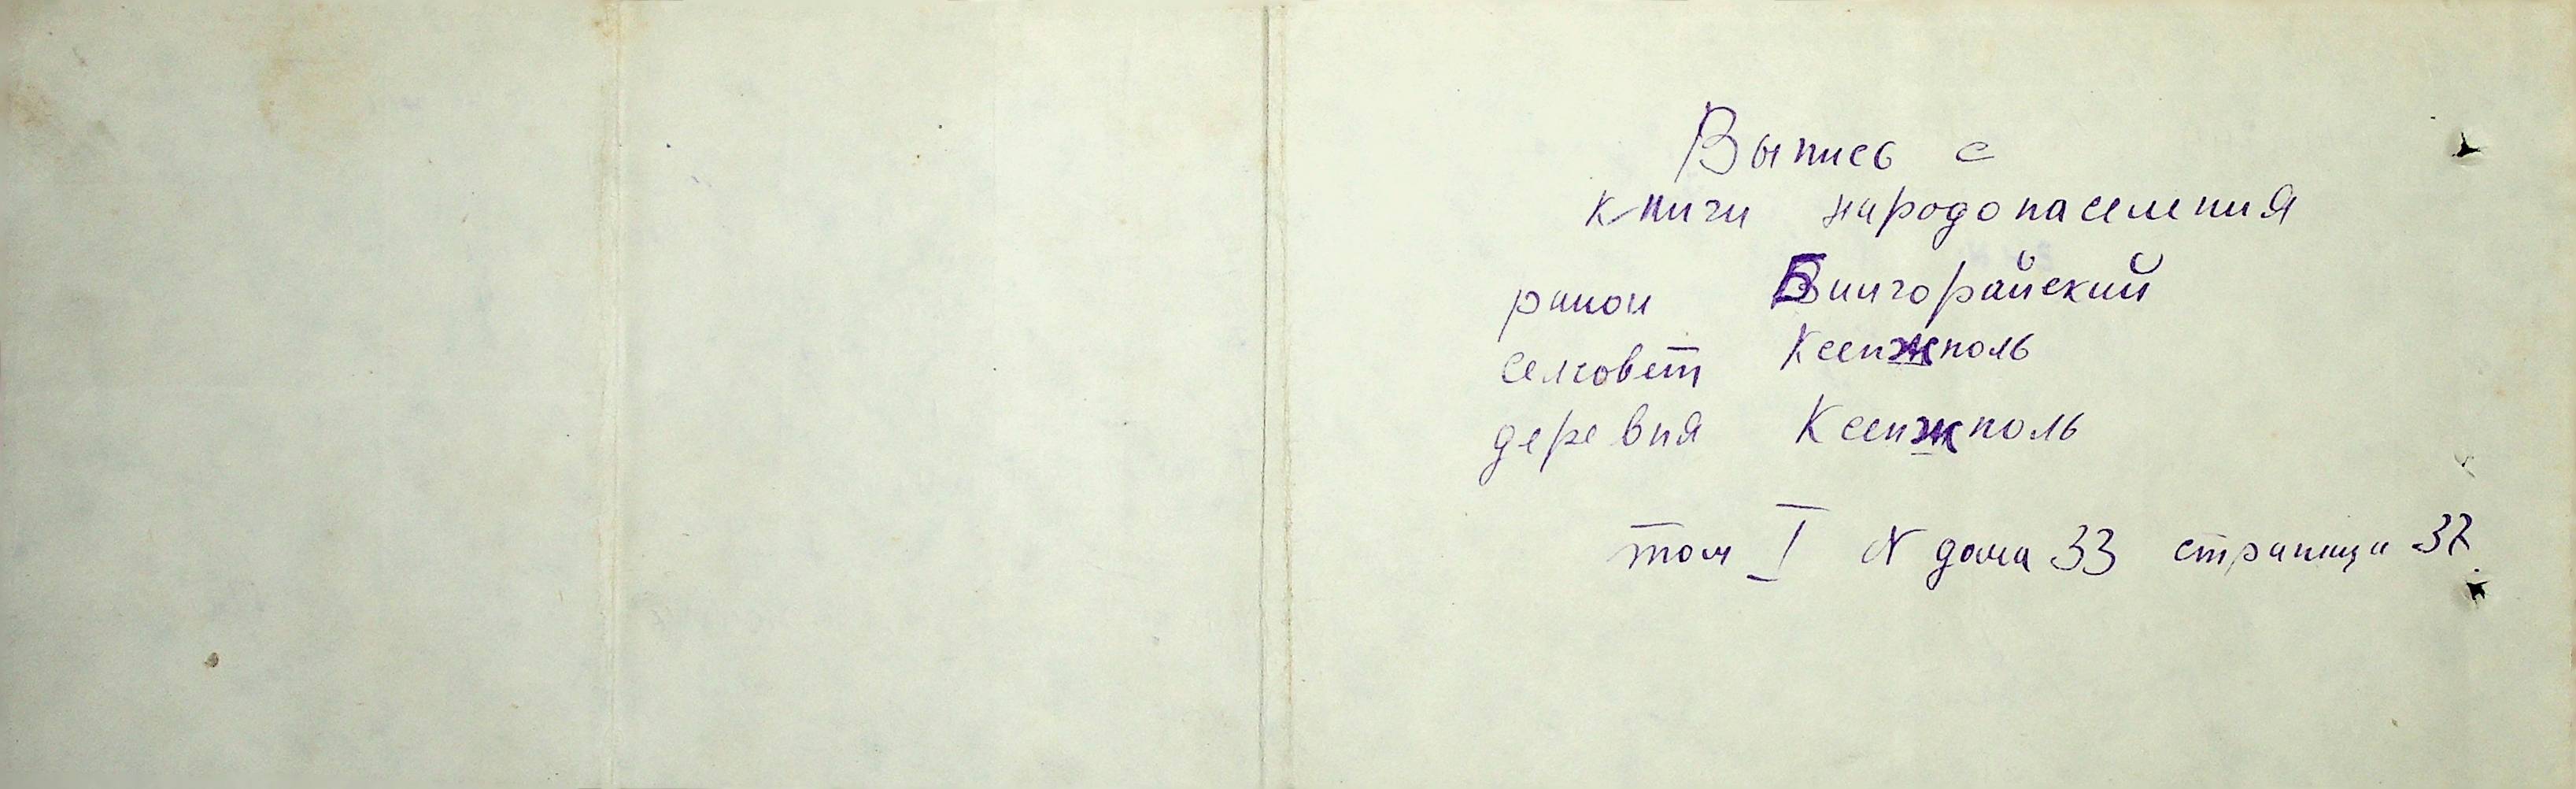 Выпись с
книги народонаселения
район Билгорайский
селсовет Ксенжполь
деревня Ксенжполь
том I N дома 33 страница 37